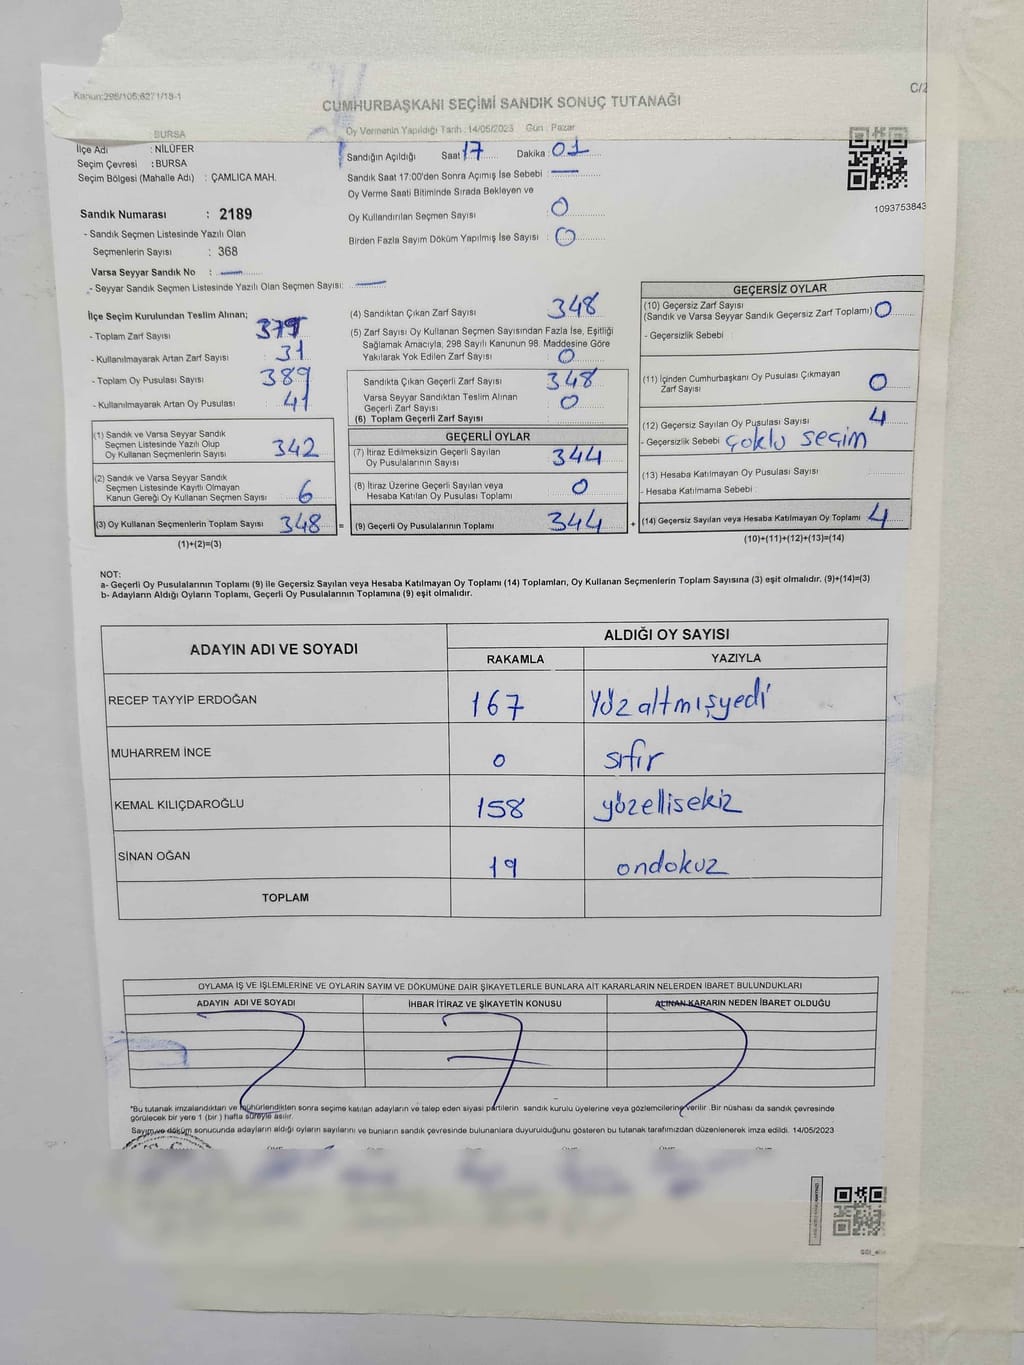 Kanun:298/105;6271/18-1
C/2
CUMHURBAŞKANI SEÇİMİ SANDIK SONUÇ TUTANAĞI
Oy Vermenin Yapıldığı Tarih : 14/05/2023 Gün : Pazar
: BURSA
İlçe Adı : NİLÜFER
Seçim Çevresi : BURSA
Seçim Bölgesi (Mahalle Adı) : ÇAMLICA MAH.
Sandık Numarası : 2189
- Sandık Seçmen Listesinde Yazılı Olan
Seçmenlerin Sayısı : 368
Varsa Seyyar Sandık No : —
- Seyyar Sandık Seçmen Listesinde Yazılı Olan Seçmen Sayısı: —
Sandığın Açıldığı Saat 17 Dakika : 01
Sandık Saat 17:00'den Sonra Açımış İse Sebebi : —
Oy Verme Saati Bitiminde Sırada Bekleyen ve
Oy Kullandırılan Seçmen Sayısı : 0
Birden Fazla Sayım Döküm Yapılmış İse Sayısı : 0
1093753843
İlçe Seçim Kurulundan Teslim Alınan;
- Toplam Zarf Sayısı 379
- Kullanılmayarak Artan Zarf Sayısı 31
- Toplam Oy Pusulası Sayısı 389
- Kullanılmayarak Artan Oy Pusulası 41
(1) Sandık ve Varsa Seyyar Sandık
Seçmen Listesinde Yazılı Olup
Oy Kullanan Seçmenlerin Sayısı 342
(2) Sandık ve Varsa Seyyar Sandık
Seçmen Listesinde Kayıtlı Olmayan
Kanun Gereği Oy Kullanan Seçmen Sayısı 6
(3) Oy Kullanan Seçmenlerin Toplam Sayısı 348 =
(1)+(2)=(3)
(4) Sandıktan Çıkan Zarf Sayısı 348
(5) Zarf Sayısı Oy Kullanan Seçmen Sayısından Fazla İse, Eşitliği
Sağlamak Amacıyla, 298 Sayılı Kanunun 98. Maddesine Göre
Yakılarak Yok Edilen Zarf Sayısı 0
Sandıkta Çıkan Geçerli Zarf Sayısı 348
Varsa Seyyar Sandıktan Teslim Alınan
Geçerli Zarf Sayısı 0
(6) Toplam Geçerli Zarf Sayısı
GEÇERLİ OYLAR
(7) İtiraz Edilmeksizin Geçerli Sayılan
Oy Pusulalarının Sayısı 344
(8) İtiraz Üzerine Geçerli Sayılan veya
Hesaba Katılan Oy Pusulası Toplamı 0
(9) Geçerli Oy Pusulalarının Toplamı 344 +
GEÇERSİZ OYLAR
(10) Geçersiz Zarf Sayısı
(Sandık ve Varsa Seyyar Sandık Geçersiz Zarf Toplamı) 0
- Geçersizlik Sebebi
(11) İçinden Cumhurbaşkanı Oy Pusulası Çıkmayan
Zarf Sayısı 0
(12) Geçersiz Sayılan Oy Pusulası Sayısı 4
- Geçersizlik Sebebi Çoklu seçim
(13) Hesaba Katılmayan Oy Pusulası Sayısı
- Hesaba Katılmama Sebebi :
(14) Geçersiz Sayılan veya Hesaba Katılmayan Oy Toplamı 4
(10)+(11)+(12)+(13)=(14)
NOT:
a- Geçerli Oy Pusulalarının Toplamı (9) ile Geçersiz Sayılan veya Hesaba Katılmayan Oy Toplamı (14) Toplamları, Oy Kullanan Seçmenlerin Toplam Sayısına (3) eşit olmalıdır. (9)+(14)=(3)
b- Adayların Aldığı Oyların Toplamı, Geçerli Oy Pusulalarının Toplamına (9) eşit olmalıdır.
ADAYIN ADI VE SOYADI ALDIĞI OY SAYISI
RAKAMLA YAZIYLA
RECEP TAYYİP ERDOĞAN 167 Yüz altmışyedi
MUHARREM İNCE 0 sıfır
KEMAL KILIÇDAROĞLU 158 yüzellisekiz
SİNAN OĞAN 19 ondokuz
TOPLAM
OYLAMA İŞ VE İŞLEMLERİNE VE OYLARIN SAYIM VE DÖKÜMÜNE DAİR ŞİKAYETLERLE BUNLARA AİT KARARLARIN NELERDEN İBARET BULUNDUKLARI
ADAYIN ADI VE SOYADI İHBAR İTİRAZ VE ŞİKAYETİN KONUSU ALINAN KARARIN NEDEN İBARET OLDUĞU
*Bu tutanak imzalandıktan ve mühürlendikten sonra seçime katılan adayların ve talep eden siyasi partilerin sandık kurulu üyelerine veya gözlemcilerine verilir. Bir nüshası da sandık çevresinde
görülecek bir yere 1 (bir) hafta süreyle asılır.
Sayım ve döküm sonucunda adayların aldığı oyların sayılarını ve bunların sandık çevresinde bulunanlara duyurulduğunu gösteren bu tutanak tarafımızdan düzenlenerek imza edildi. 14/05/2023